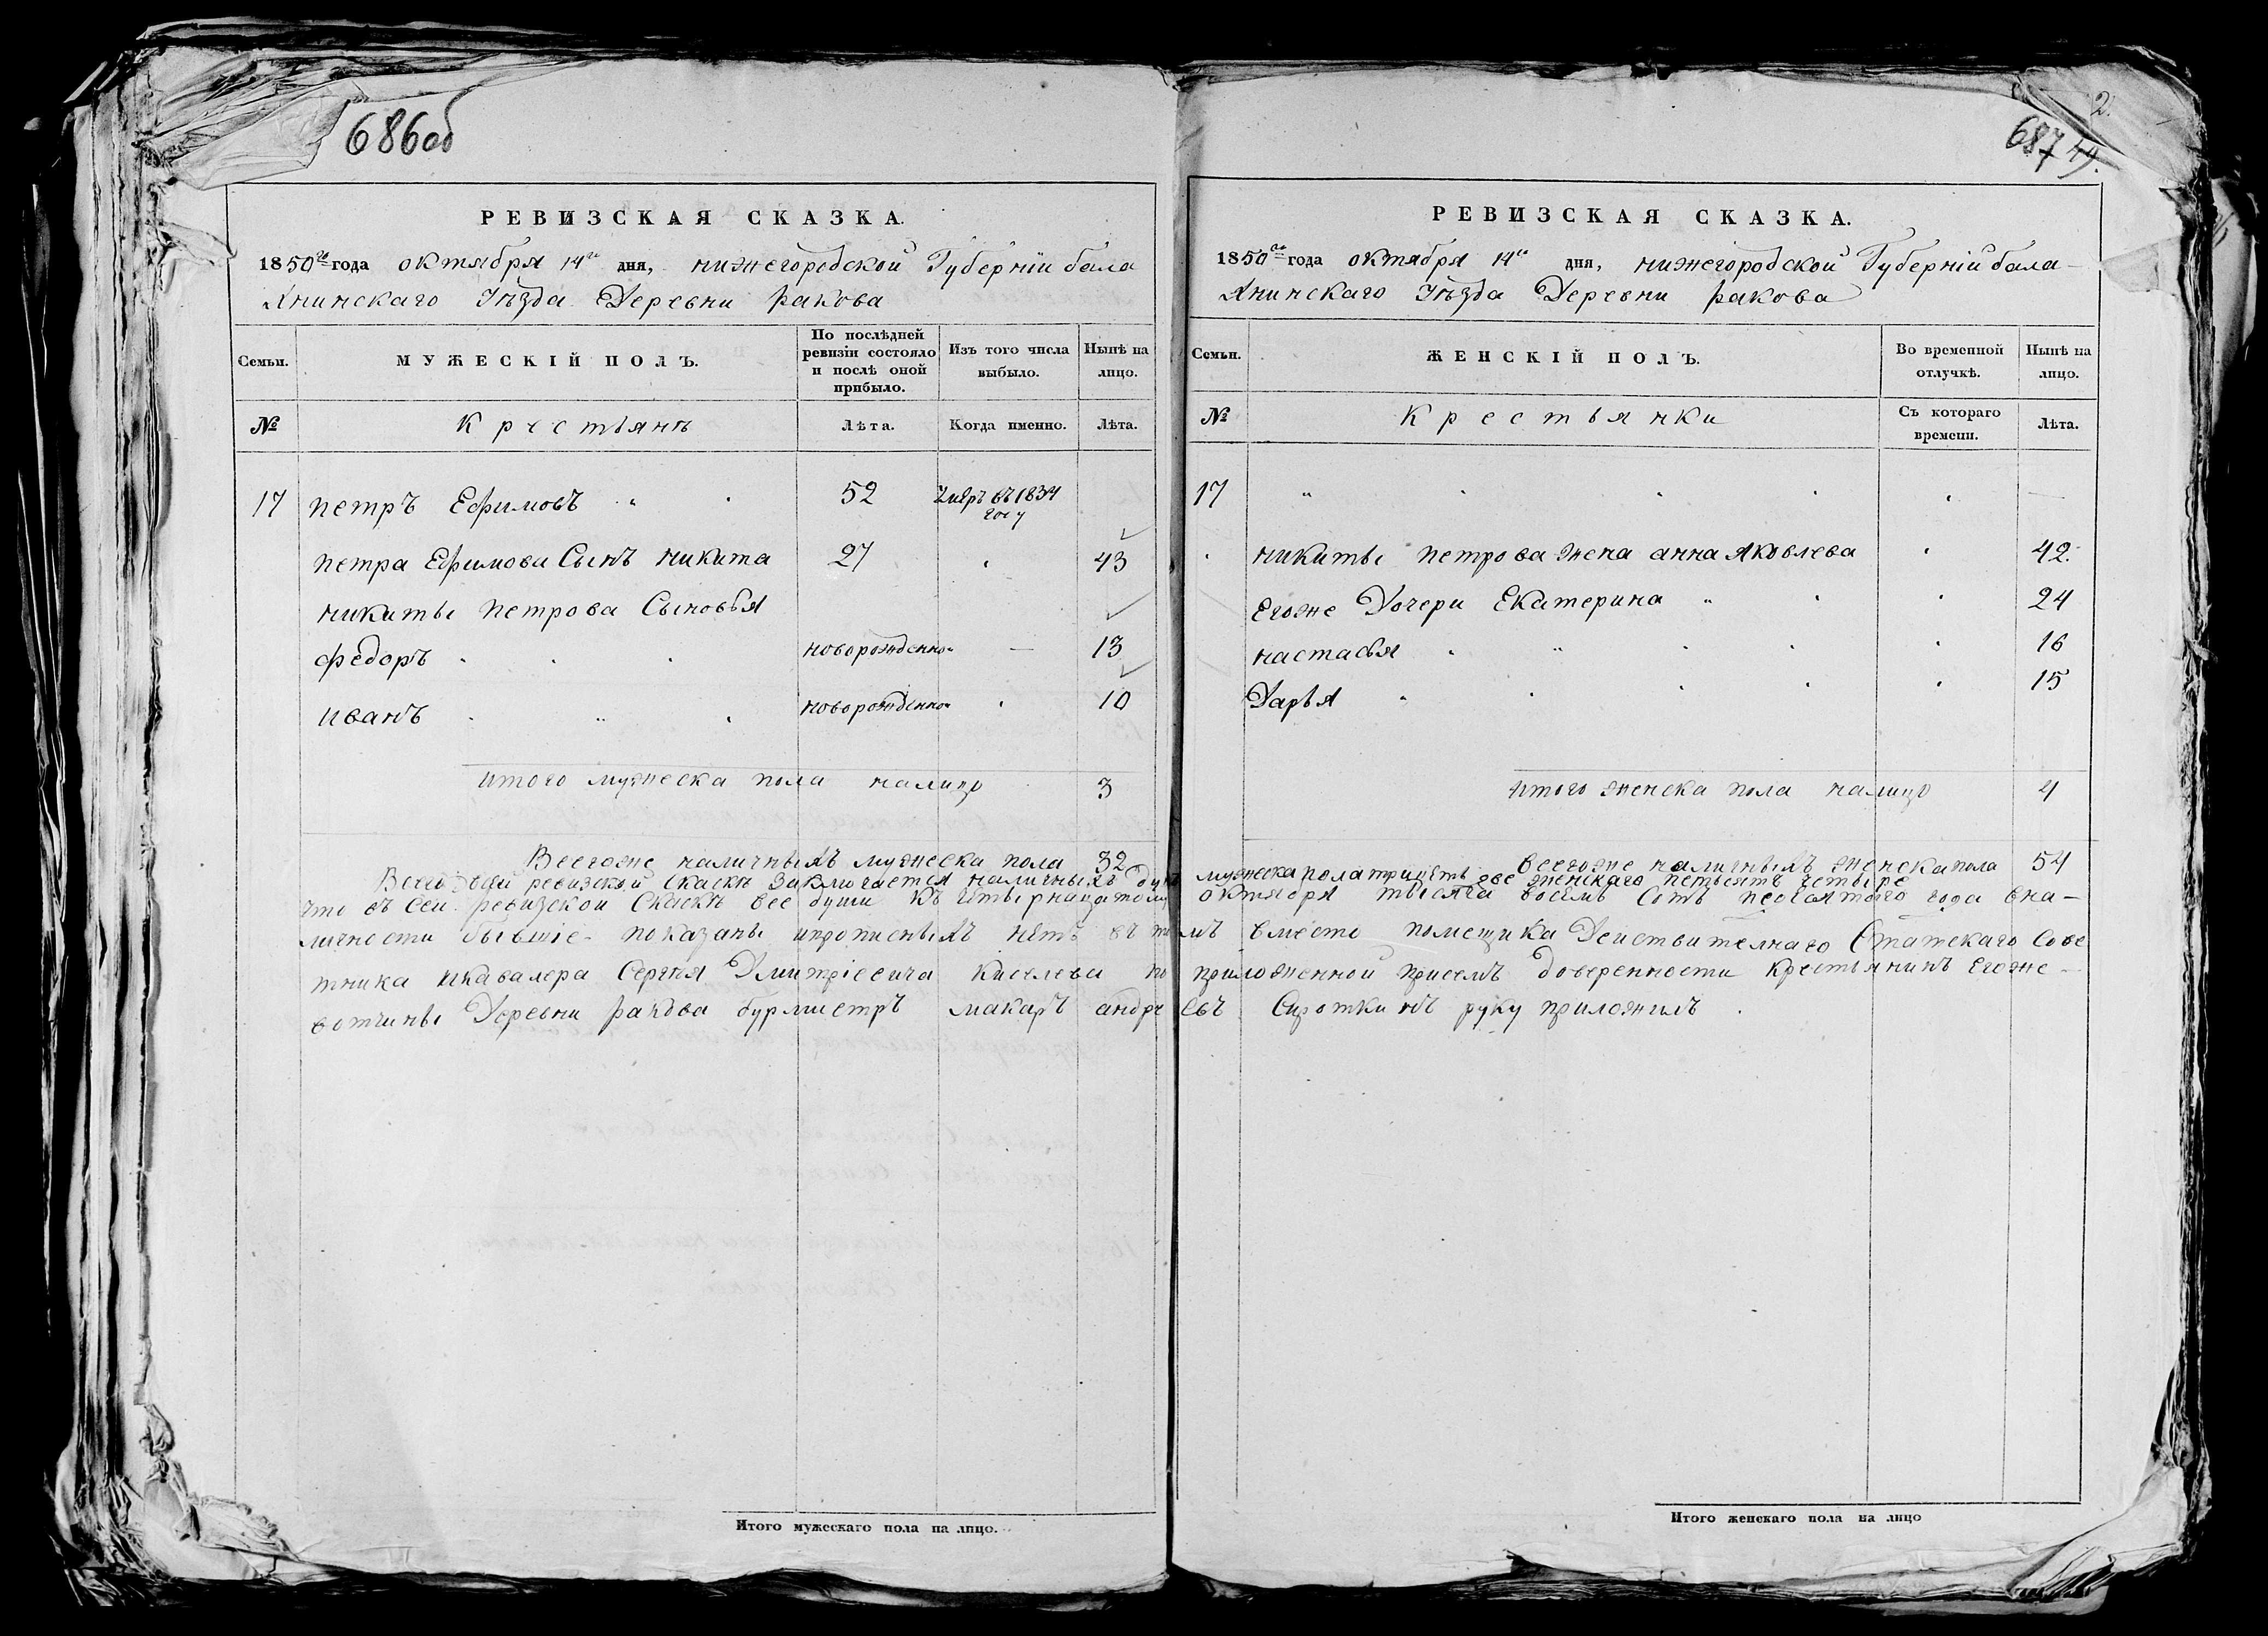 686об
РЕВИЗСКАЯ СКАЗКА.
1850го года октября 14го дня, нижегородской Губерніи бала
хнинскаго Уѣзда Деревни ракова
Семьи. МУЖЕСКІЙ ПОЛЪ. По послѣдней ревизіи состояло и послѣ оной прибыло. Изъ того числа выбыло. Нынѣ на лицо.
№ Крестьянѣ Лѣта. Когда именно. Лѣта.
17 петръ Ефимовъ 52 Умеръ въ 1834 году
петра Ефимова Сынъ никита 27 43
никиты петрова Сыновья
федоръ новорожденной — 13
иванъ новорожденной 10
итого мужеска пола налицо 3
Всегоже наличныхъ мужеска пола 32
2.
687 49.
РЕВИЗСКАЯ СКАЗКА.
1850го года октября 14го дня, нижегородской Губерній бала-
хнинскаго Уѣзда Деревни ракова
Семьи. ЖЕНСКІЙ ПОЛЪ. Во временной отлучкѣ. Нынѣ на лицо.
№ Крестьянки Съ котораго времени. Лѣта.
17
никиты петрова жена анна Яковлева 42
Егоже Дочери Екатерина 24
настасья 16
Дарья 15
итого женска пола налицо 4
всегоже наличныхъ женска пола 54
Всего ревизской скаскѣ заключается наличныхъ душъ мужеска пола тритцеть две женскаго петьсятъ четыре
что въ сей ревизской Скаскѣ все души къ четырнацатому октября тысяча восемь Сотъ песятого года вна-
личности бывшіе показаны ипрописныхъ нѣтъ въ томъ вместо помещика Действителнаго Статскаго Сове
тника икавалера Сергѣя Дмитріевича Киселева по приложенной присемъ доверенности крестьянинъ Егоже
вотчины Деревни ракова бурмистръ макаръ андреевъ Сироткинъ руку приложилъ
Итого мужескаго пола на лицо.
Итого женскаго пола на лицо